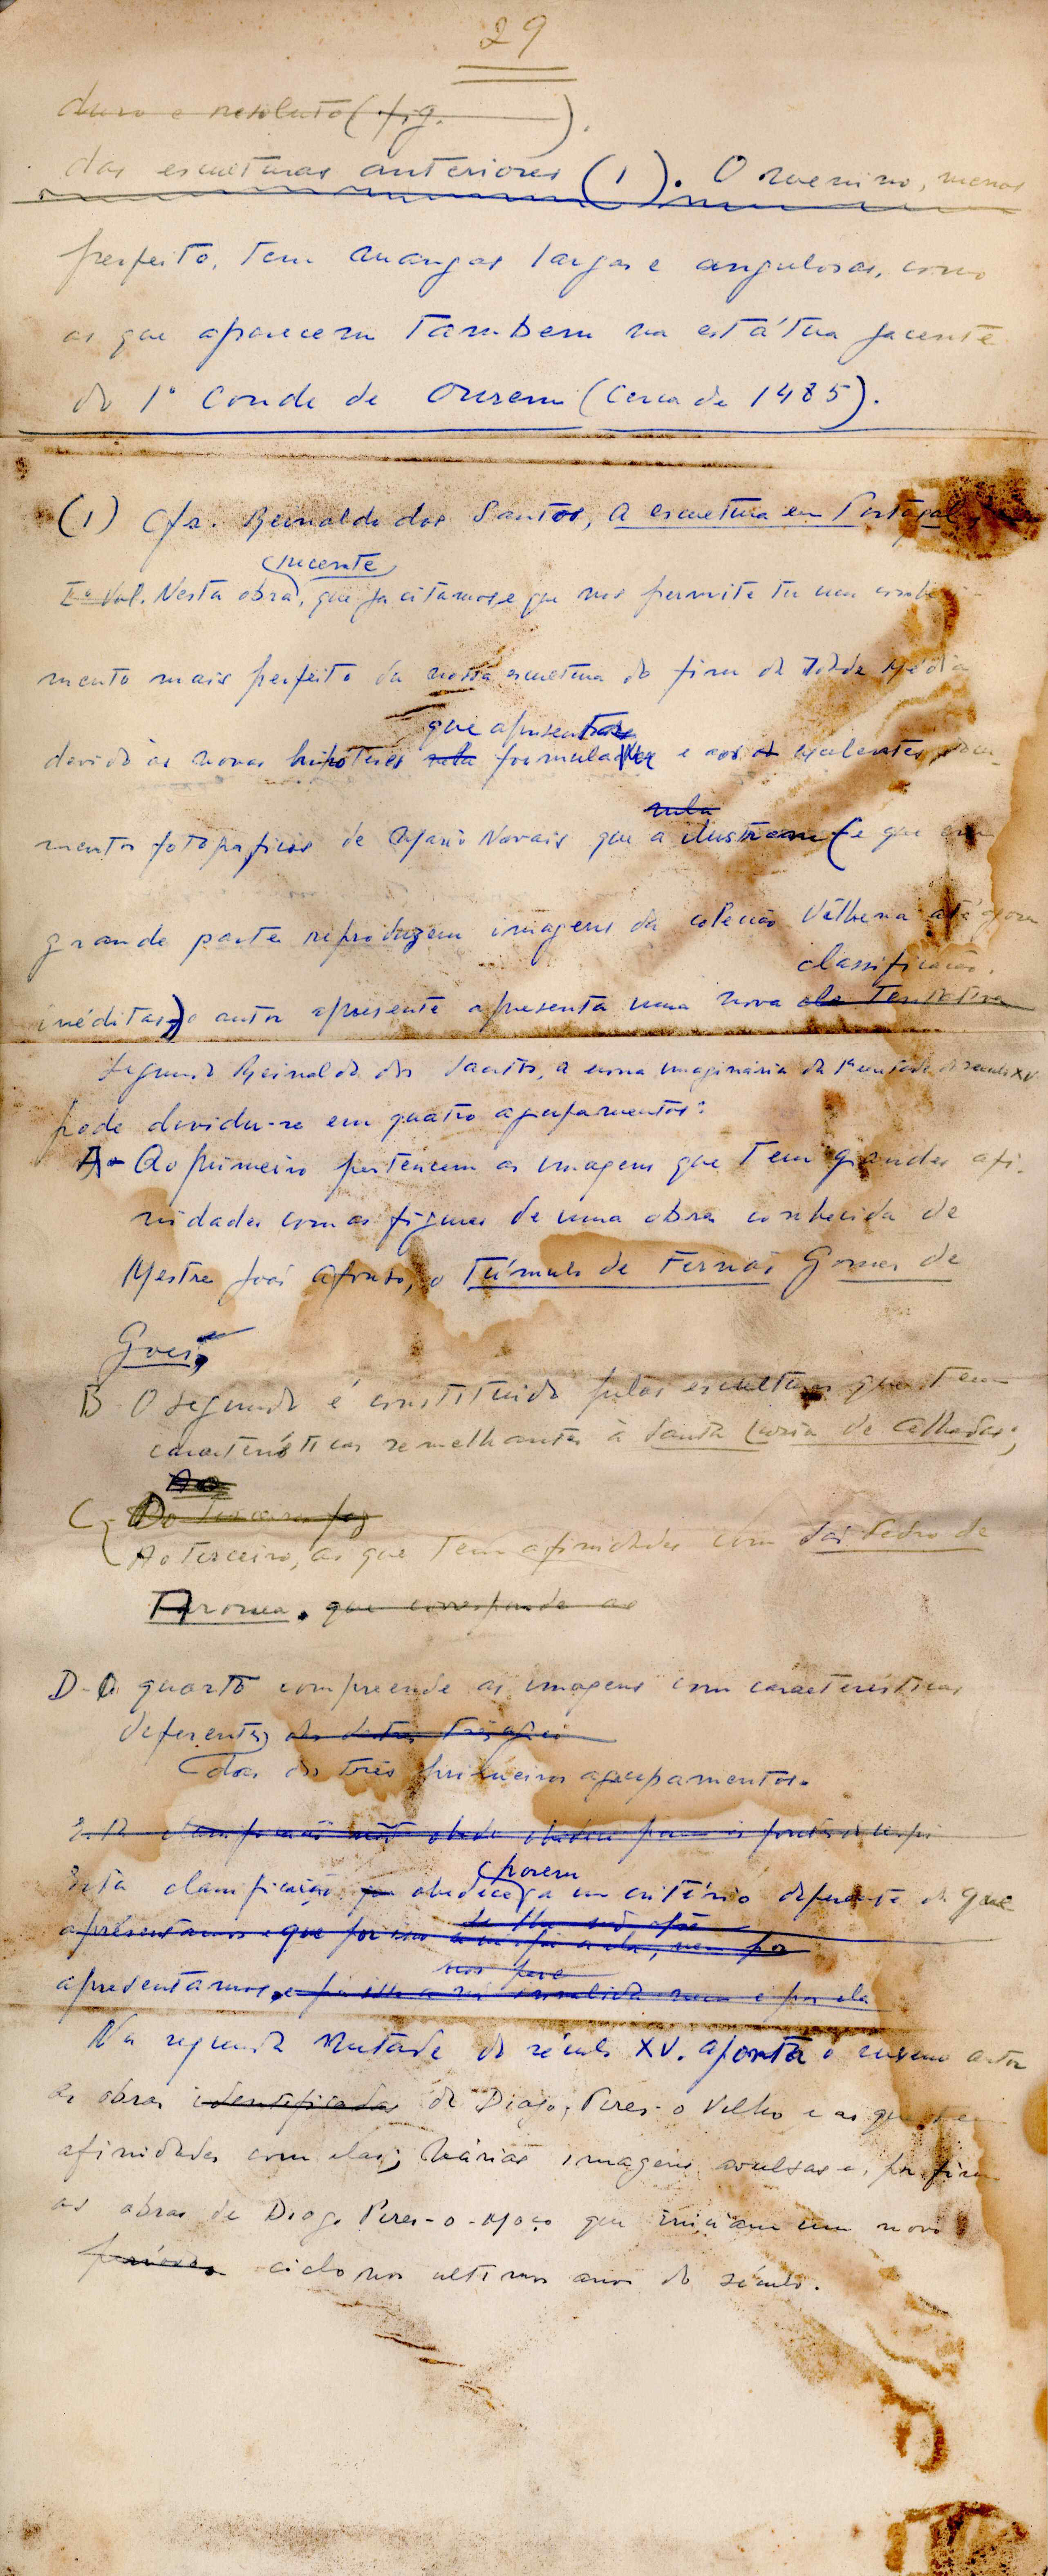 29
duro e resoluto (fig. ).
das esculturas anteriores (1). O menino, menos
perfeito, tem mangas largas e angulosas, como
as que aparecem tambem na estátua jacente
do 1º Conde de Ourem (cerca de 1485).
(1) Cfr. Reinaldo dos Santos, A escultura em Portugal,
recente
Iº Vol. Nesta obra, que já citamos, e que nos permite ter um conheci-
mento mais perfeito da nossa escultura do fim da Idade Média
que apresenta
devido às novas hipóteses nela formuladas e aos excelentes docu-
nela
mentos fotográficos de Mário Novais que a ilustram (e que em
grande parte reproduzem imagens da colecção Vilhena até agora
classificação.
inéditas) o autor apresenta uma nova tentativa
Segundo Reinaldo dos Santos, a nossa imaginária da 1ª metade do século XV
pode dividir-se em quatro agrupamentos:
A- Ao primeiro pertencem as imagens que tem grandes afi-
nidades com as figuras de uma obra conhecida de
Mestre João Afonso, o Túmulo de Fernão Gomes de
Gois,
B O segundo é constituido pelas esculturas que tem
caracteristicas semelhantes à Santa Luzia de Alhadas;
Ao
C- Do terceiro faz
Ao terceiro, as que tem afinidades com São Pedro de
Arouca. que corresponde ao
D- O quarto compreende as imagens com caracteristicas
diferentes
das dos três primeiros agrupamentos.
porem
Esta classificação obedece a um critério diferente do que
apresentamos e que por isso nem por
apresentamos, e por ela
Na segunda metade do século XV. aponta o mesmo autor
as obras identificadas de Diogo Pires-o Velho e as que tem
afinidades com elas; várias imagens avulsas e, por fim
as obras de Diogo Pires-o-Moço que iniciam um novo
ciclo nos ultimos anos do século.